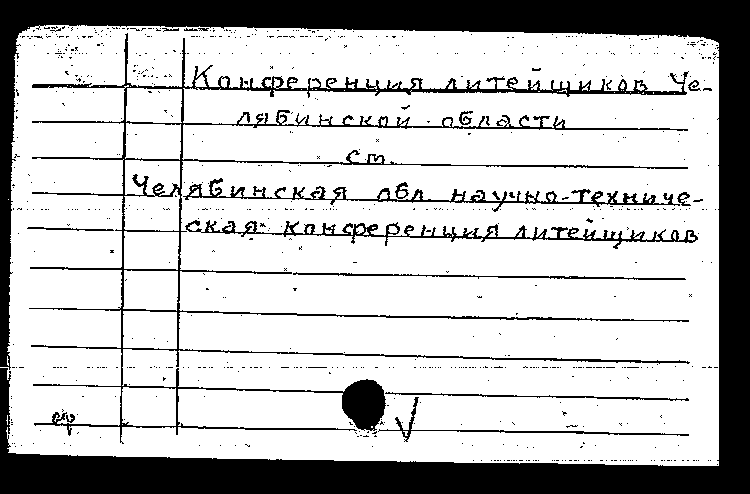 Конференция литейщиков Че-
лябинской области
см.
Челябинская обл. научно-техниче-
ская конференция литейщиков